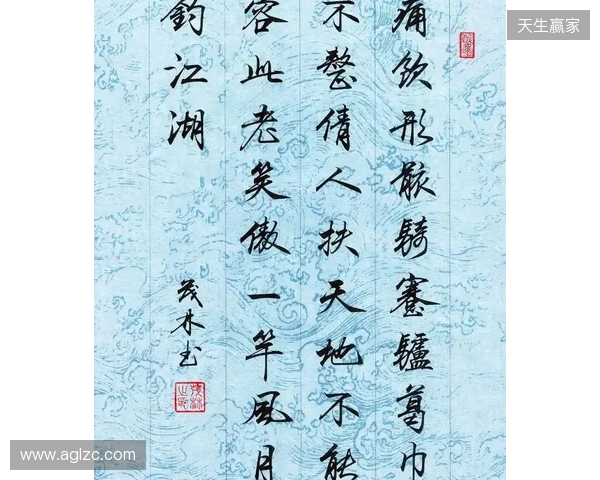 天生赢家
痛饮形骸騎蹇驢葛巾
不整倩人扶天地不能
容此老笑傲一竿風月
釣江湖
茂林书
www.aglzc.com